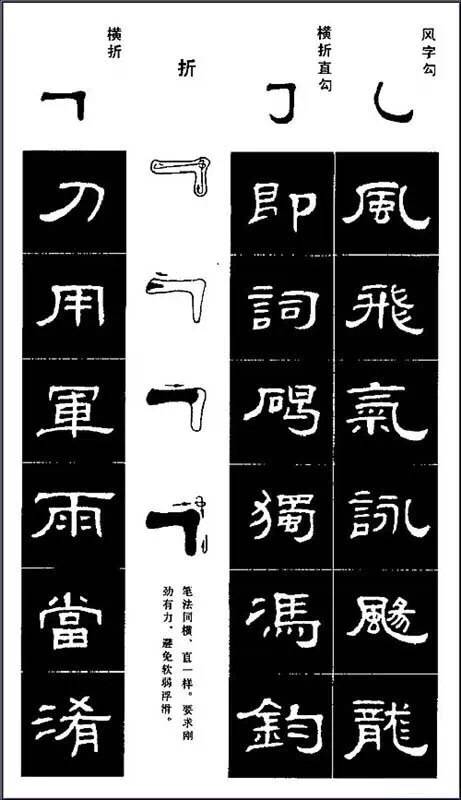 风字勾
風飛氣詠颺龍
横折直勾
即詞獨馮鈞
折
笔法同横、直一样。要求刚
劲有力，避免软弱浮滑。
横折
刀用軍雨當淆